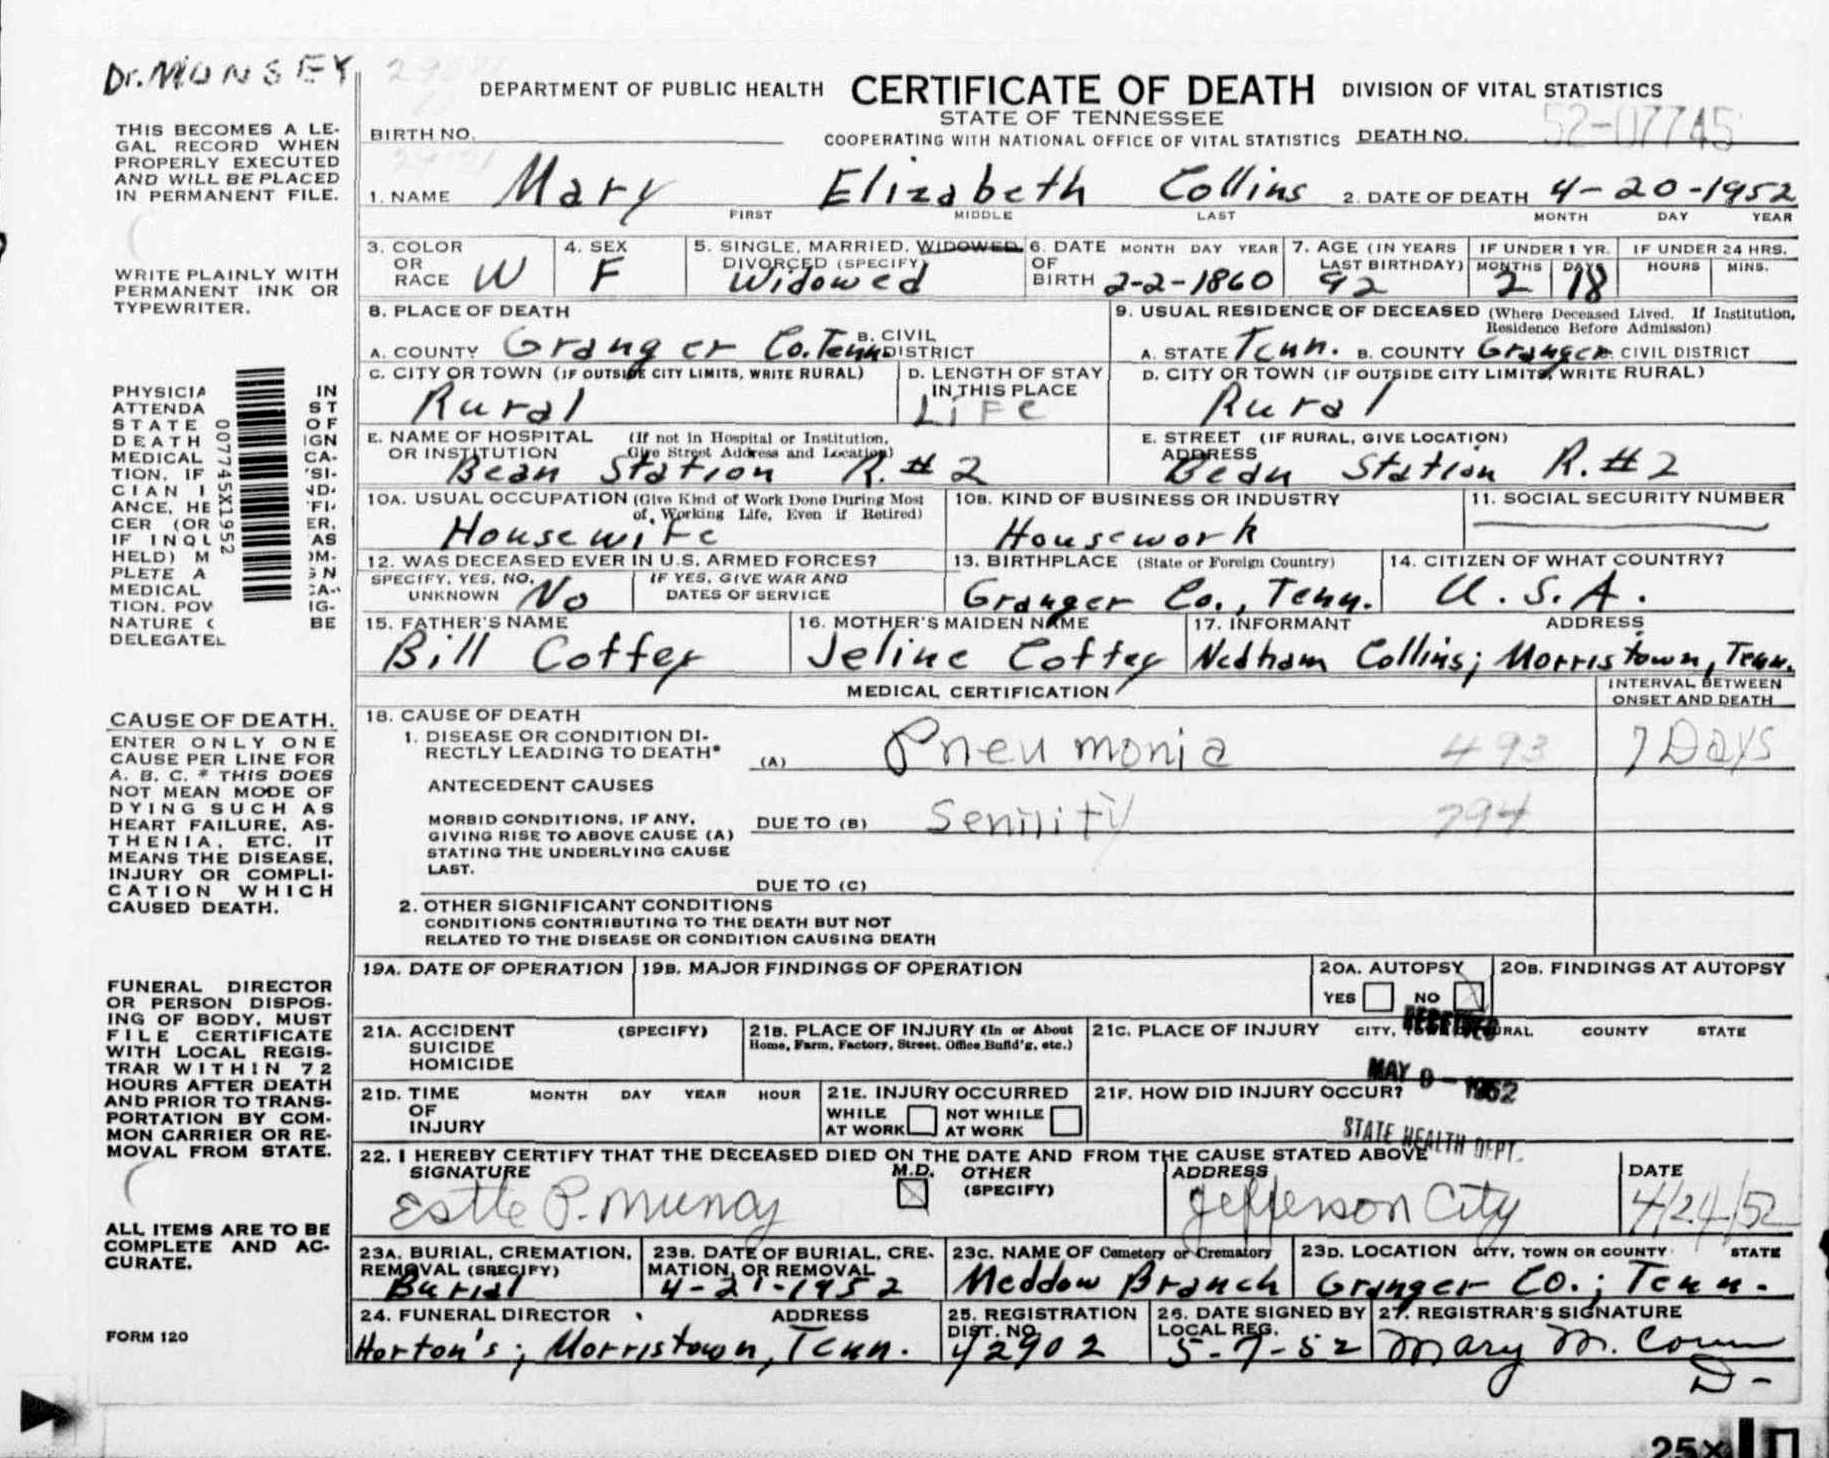 Dr. MUNSEY
DEPARTMENT OF PUBLIC HEALTH CERTIFICATE OF DEATH DIVISION OF VITAL STATISTICS
STATE OF TENNESSEE
BIRTH NO. COOPERATING WITH NATIONAL OFFICE OF VITAL STATISTICS DEATH NO. 52-07745
THIS BECOMES A LE-
GAL RECORD WHEN
PROPERLY EXECUTED
AND WILL BE PLACED
IN PERMANENT FILE.
1. NAME Mary Elizabeth Collins 2. DATE OF DEATH 4-20-1952
FIRST MIDDLE LAST MONTH DAY YEAR
WRITE PLAINLY WITH
PERMANENT INK OR
TYPEWRITER.
3. COLOR OR RACE W
4. SEX F
5. SINGLE, MARRIED, WIDOWED, DIVORCED (SPECIFY) Widowed
6. DATE OF BIRTH MONTH DAY YEAR 2-2-1860
7. AGE (IN YEARS LAST BIRTHDAY) 92
IF UNDER 1 YR. MONTHS 2 DAYS 18
IF UNDER 24 HRS. HOURS MINS.
8. PLACE OF DEATH
A. COUNTY Granger Co. Tenn B. CIVIL DISTRICT
9. USUAL RESIDENCE OF DECEASED (Where Deceased Lived. If Institution, Residence Before Admission)
A. STATE Tenn. B. COUNTY Granger C. CIVIL DISTRICT
C. CITY OR TOWN (IF OUTSIDE CITY LIMITS, WRITE RURAL) Rural
D. LENGTH OF STAY IN THIS PLACE Life
D. CITY OR TOWN (IF OUTSIDE CITY LIMITS, WRITE RURAL) Rural
E. NAME OF HOSPITAL OR INSTITUTION (If not in Hospital or Institution, Give Street Address and Location) Bean Station R. #2
E. STREET ADDRESS (IF RURAL, GIVE LOCATION) Bean Station R. #2
PHYSICIA IN
ATTENDA ST
STATE OF
DEATH IGN
MEDICAL CA-
TION. IF 'SI-
CIAN I ND-
ANCE, HE 'FI-
CER (OR ER,
IF INQU AS
HELD) M OM-
PLETE A GN
MEDICAL CA-
TION. POW IG-
NATURE C BE
DELEGATE
007745X1952
10A. USUAL OCCUPATION (Give Kind of Work Done During Most of Working Life, Even if Retired) Housewife
10B. KIND OF BUSINESS OR INDUSTRY Housework
11. SOCIAL SECURITY NUMBER
12. WAS DECEASED EVER IN U.S. ARMED FORCES?
SPECIFY, YES, NO, UNKNOWN No
IF YES, GIVE WAR AND DATES OF SERVICE
13. BIRTHPLACE (State or Foreign Country) Granger Co., Tenn.
14. CITIZEN OF WHAT COUNTRY? U.S.A.
15. FATHER'S NAME Bill Coffey
16. MOTHER'S MAIDEN NAME Jeline Coffey
17. INFORMANT ADDRESS Nedham Collins; Morristown, Tenn.
MEDICAL CERTIFICATION
INTERVAL BETWEEN ONSET AND DEATH
CAUSE OF DEATH.
ENTER ONLY ONE
CAUSE PER LINE FOR
A. B. C. * THIS DOES
NOT MEAN MODE OF
DYING SUCH AS
HEART FAILURE, AS-
THENIA, ETC. IT
MEANS THE DISEASE,
INJURY OR COMPLI-
CATION WHICH
CAUSED DEATH.
18. CAUSE OF DEATH
1. DISEASE OR CONDITION DI-
RECTLY LEADING TO DEATH* (A) Pneumonia 493 7 Days
ANTECEDENT CAUSES
MORBID CONDITIONS, IF ANY, GIVING RISE TO ABOVE CAUSE (A) STATING THE UNDERLYING CAUSE LAST.
DUE TO (B) Senility 794
DUE TO (C)
2. OTHER SIGNIFICANT CONDITIONS
CONDITIONS CONTRIBUTING TO THE DEATH BUT NOT
RELATED TO THE DISEASE OR CONDITION CAUSING DEATH
FUNERAL DIRECTOR
OR PERSON DISPOS-
ING OF BODY, MUST
FILE CERTIFICATE
WITH LOCAL REGIS-
TRAR WITHIN 72
HOURS AFTER DEATH
AND PRIOR TO TRANS-
PORTATION BY COM-
MON CARRIER OR RE-
MOVAL FROM STATE.
19A. DATE OF OPERATION
19B. MAJOR FINDINGS OF OPERATION
20A. AUTOPSY YES NO
20B. FINDINGS AT AUTOPSY
21A. ACCIDENT (SPECIFY)
SUICIDE
HOMICIDE
21B. PLACE OF INJURY (In or About Home, Farm, Factory, Street, Office Build'g, etc.)
21C. PLACE OF INJURY CITY, RURAL COUNTY STATE
RECEIVED
MAY 9 - 1952
STATE HEALTH DEPT.
21D. TIME OF INJURY MONTH DAY YEAR HOUR
21E. INJURY OCCURRED
WHILE AT WORK NOT WHILE AT WORK
21F. HOW DID INJURY OCCUR?
22. I HEREBY CERTIFY THAT THE DECEASED DIED ON THE DATE AND FROM THE CAUSE STATED ABOVE
SIGNATURE Estle P. Muncy M.D. OTHER (SPECIFY)
ADDRESS Jefferson City
DATE 4/24/52
ALL ITEMS ARE TO BE
COMPLETE AND AC-
CURATE.
23A. BURIAL, CREMATION, REMOVAL (SPECIFY) Burial
23B. DATE OF BURIAL, CRE-MATION, OR REMOVAL 4-21-1952
23C. NAME OF Cemetery or Crematory Meddow Branch
23D. LOCATION CITY, TOWN OR COUNTY STATE Granger Co.; Tenn.
24. FUNERAL DIRECTOR ADDRESS Horton's; Morristown, Tenn.
25. REGISTRATION DIST. NO. 42902
26. DATE SIGNED BY LOCAL REG. 5-7-52
27. REGISTRAR'S SIGNATURE Mary M.
D-
FORM 120
25X